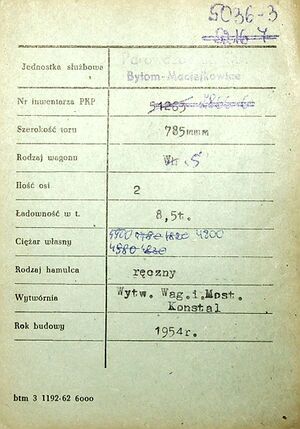 5036-3
Jednostka służbowa
Bytom-Maciejkowice
Nr inwentarza PKP 91285
Szerokość toru 785mmm
Rodzaj wagonu Wn S
Ilość osi 2
Ładowność w t. 8,5t.
Ciężar własny 4200
4980
Rodzaj hamulca ręczny
Wytwórnia Wytw. Wag.i.Most.
Konstal
Rok budowy 1954r.
btm 3 1192-62 6000